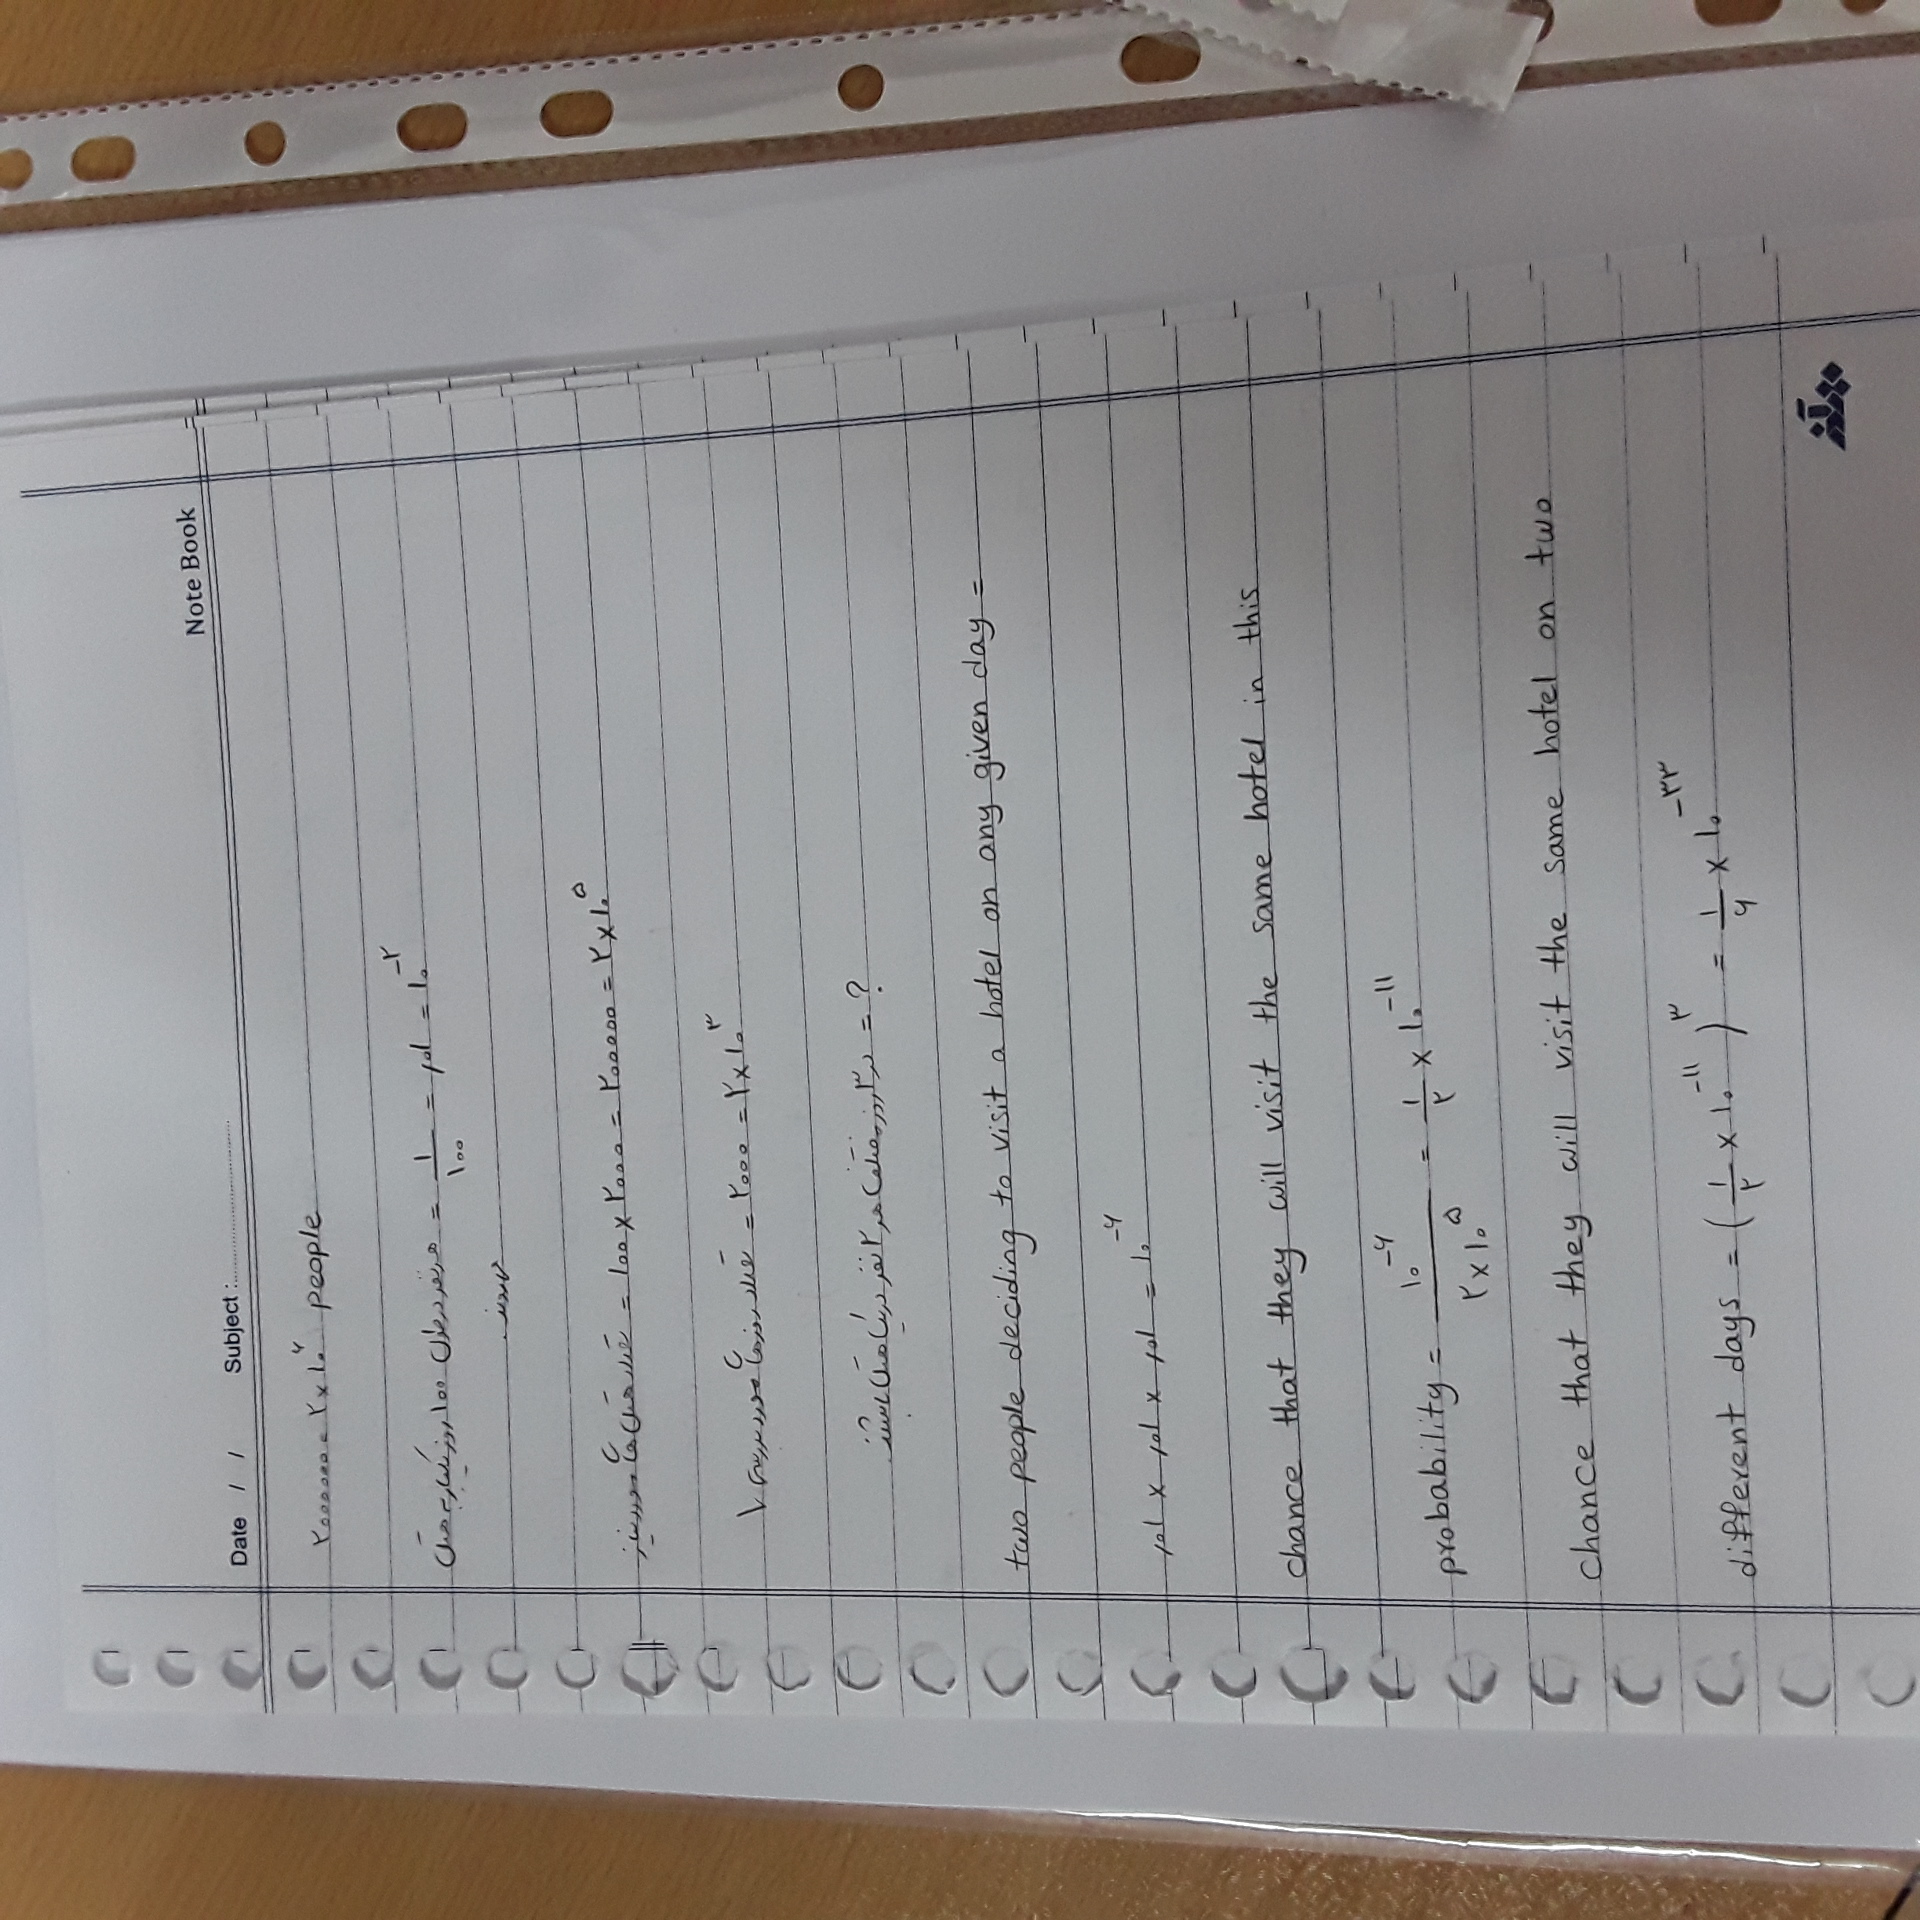 Note Book
Date / / Subject :
۲۰۰۰۰۰۰ = ۲ × ۱۰^۶ people
هر نفر در طول ۱۰۰ روز یکبار به هتل = ۱/۱۰۰ = ۰٫۰۱ = ۱۰^-۲
میروند.
تعداد هتل های مورد نیاز = ۱۰۰ × ۲۰۰۰ = ۲۰۰۰۰۰ = ۲ × ۱۰^۵
تعداد روزهای مورد بررسی = ۲۰۰۰ = ۲ × ۱۰^۳
در ۳ روز مختلف هر ۲ نفر در یک هتل باشند = ?
two people deciding to visit a hotel on any given day =
۰٫۰۱ × ۰٫۰۱ × ۰٫۰۱ = ۱۰^-۶
chance that they will visit the same hotel in this
probability = ۱۰^-۶ / ۲ × ۱۰^۵ = ۱/۲ × ۱۰^-۱۱
chance that they will visit the same hotel on two
different days = (۱/۲ × ۱۰^-۱۱)^۳ = ۱/۶ × ۱۰^-۳۳